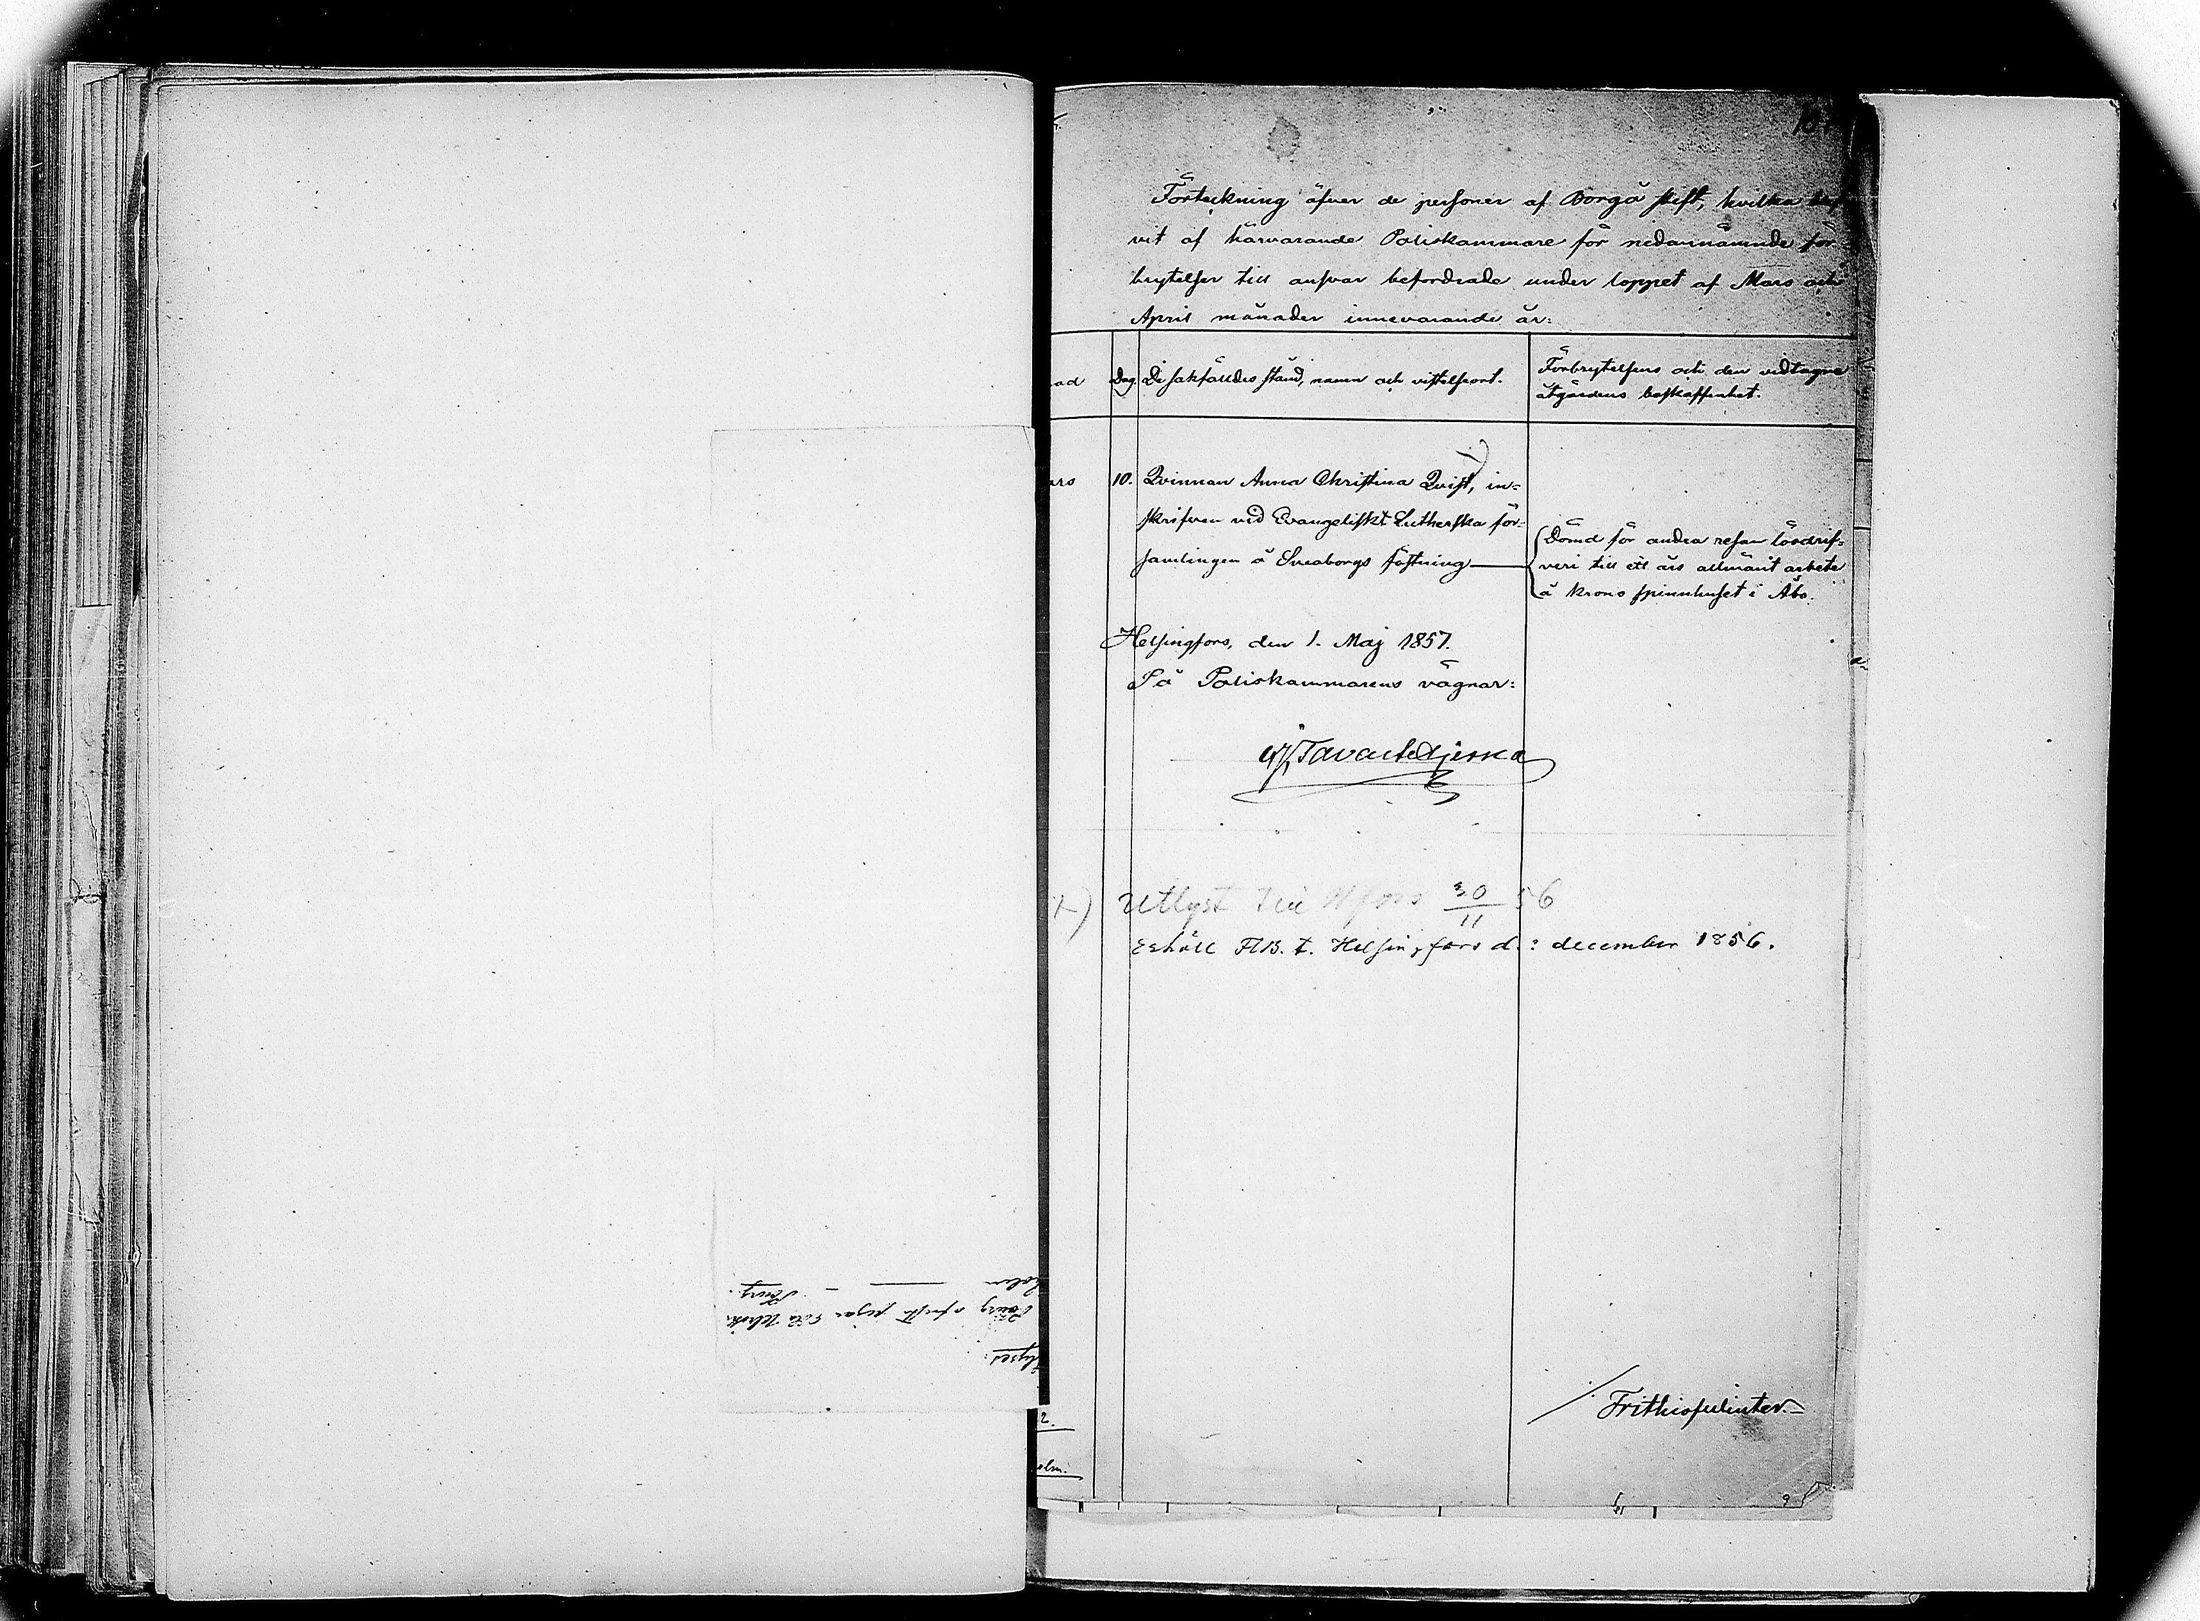 Förteckning öfver de personer af Borgå stift, hvilka
vit af härvarande Poliskammare för nedannämnde för-
brytelser till ansvar befordrade under loppet af Mars och
April månader innevarande år:
ad Dag. De sakfälldes stånd, namn och vistelseort.
Förbrytelsens och den vidtagne
åtgärdens beskaffenhet.
ars 10. Qvinnan Anna Christina Qvist, in-
skrifven vid Evangeliskt Lutherska för-
samlingen å Sveaborgs fästning
Dömd för andra resan lösdrif-
veri till ett års allmänt arbete
å krono spinnhuset i Åbo.
Helsingfors, den 1. Maj 1857.
På Poliskammarens vägnar:
Tavastestjerna
Utlyst till Hfors 30/11 56
Erhöll Fl.B. t. Helsingfors d. 2 december 1856.
2.
olm.